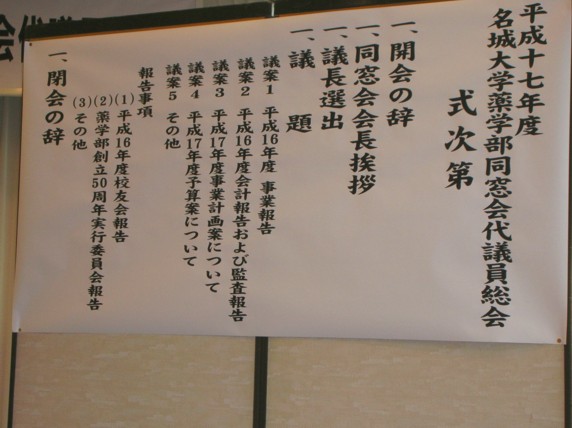 平成十七年度
名城大学薬学部同窓会代議員総会
式次第
一、開会の辞
一、同窓会会長挨拶
一、議長選出
一、議　題
議案1　平成16年度 事業報告
議案2　平成16年度会計報告および監査報告
議案3　平成17年度事業計画案について
議案4　平成17年度予算案について
議案5　その他
報告事項
(1)平成16年度校友会報告
(2)薬学部創立50周年実行委員会報告
(3)その他
一、閉会の辞